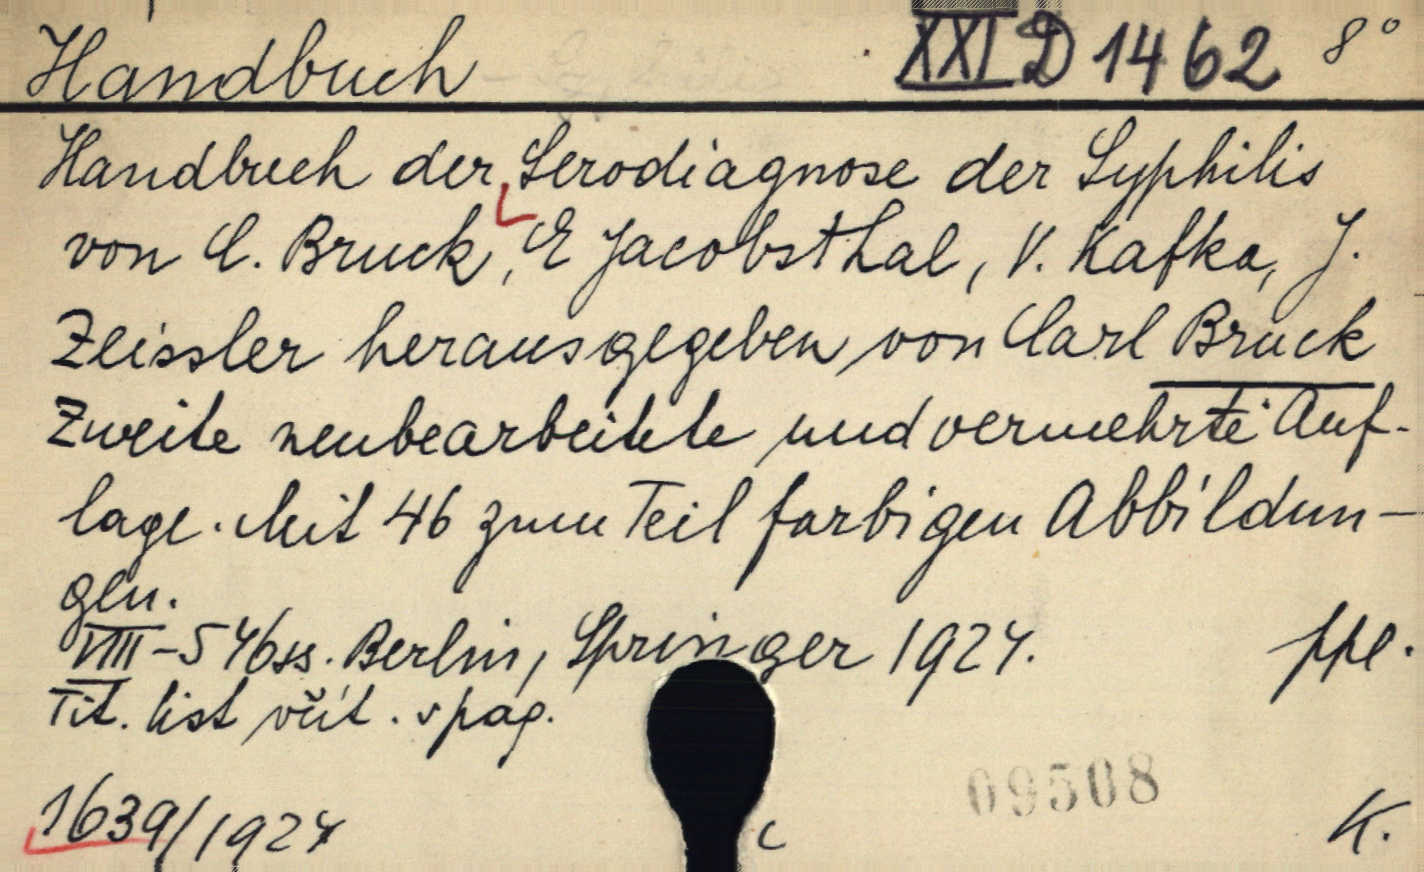 Handbuch XXI D 1462 8°
Handbuch der Serodiagnose der Syphilis
von C. Bruck, E Jacobsthal, V. Kafka, J.
Zeissler herausgegeben von Carl Bruck
Zweite neubearbeitete und vermehrte Auf-
lage. Mit 46 zum Teil farbigen Abbildun-
gen.
VIII-546ss. Berlin, Springer 1924. ppl.
Tit. list včít. v pag.
09508
1639/1924 c K.